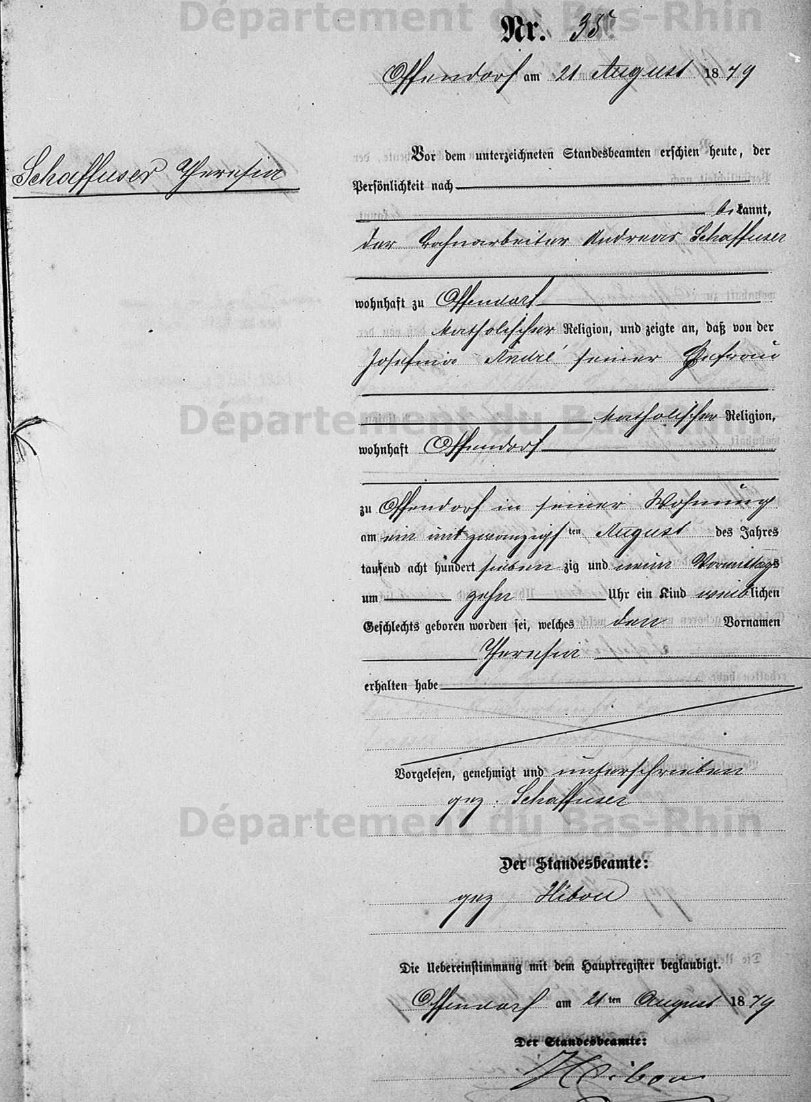 Département du Bas-Rhin
Nr. 35
Offendorf am 21 August 1879
Schaffuser Theresia
Vor dem unterzeichneten Standesbeamten erschien heute, der
Persönlichkeit nach
bekannt,
der Bahnarbeiter Andreas Schaffuser
wohnhaft zu Offendorf
katholischer Religion, und zeigte an, daß von der
Josefina André seiner Ehefrau
katholischer Religion,
Département du Bas-Rhin
wohnhaft Offendorf
zu Offendorf in seiner Wohnung
am ein und zwanzigsten August des Jahres
tausend acht hundert siebenzig und neun Vormittags
um zehn Uhr ein Kind weiblichen
Geschlechts geboren worden sei, welches den Vornamen
Theresia
erhalten habe
Vorgelesen, genehmigt und unterschrieben
gez. Schaffuser
Département du Bas-Rhin
Der Standesbeamte:
gez Hibou
Die Uebereinstimmung mit dem Hauptregister beglaubigt.
Offendorf am 21ten August 1879
Der Standesbeamte:
Hibou